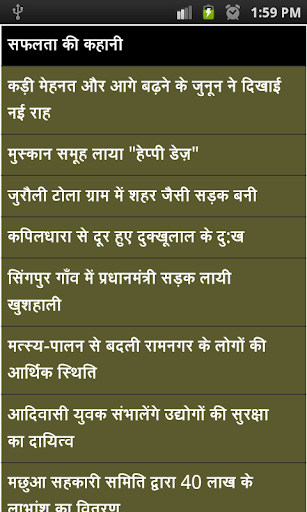 1:59 PM
सफलता की कहानी
कड़ी मेहनत और आगे बढ़ने के जुनून ने दिखाई
नई राह
मुस्कान समूह लाया "हेप्पी डेज़"
जुरौली टोला ग्राम में शहर जैसी सड़क बनी
कपिलधारा से दूर हुए दुक्खूलाल के दु:ख
सिंगपुर गाँव में प्रधानमंत्री सड़क लायी
खुशहाली
मत्स्य-पालन से बदली रामनगर के लोगों की
आर्थिक स्थिति
आदिवासी युवक संभालेंगे उद्योगों की सुरक्षा
का दायित्व
मछुआ सहकारी समिति द्वारा 40 लाख के
लाभांश का वितरण